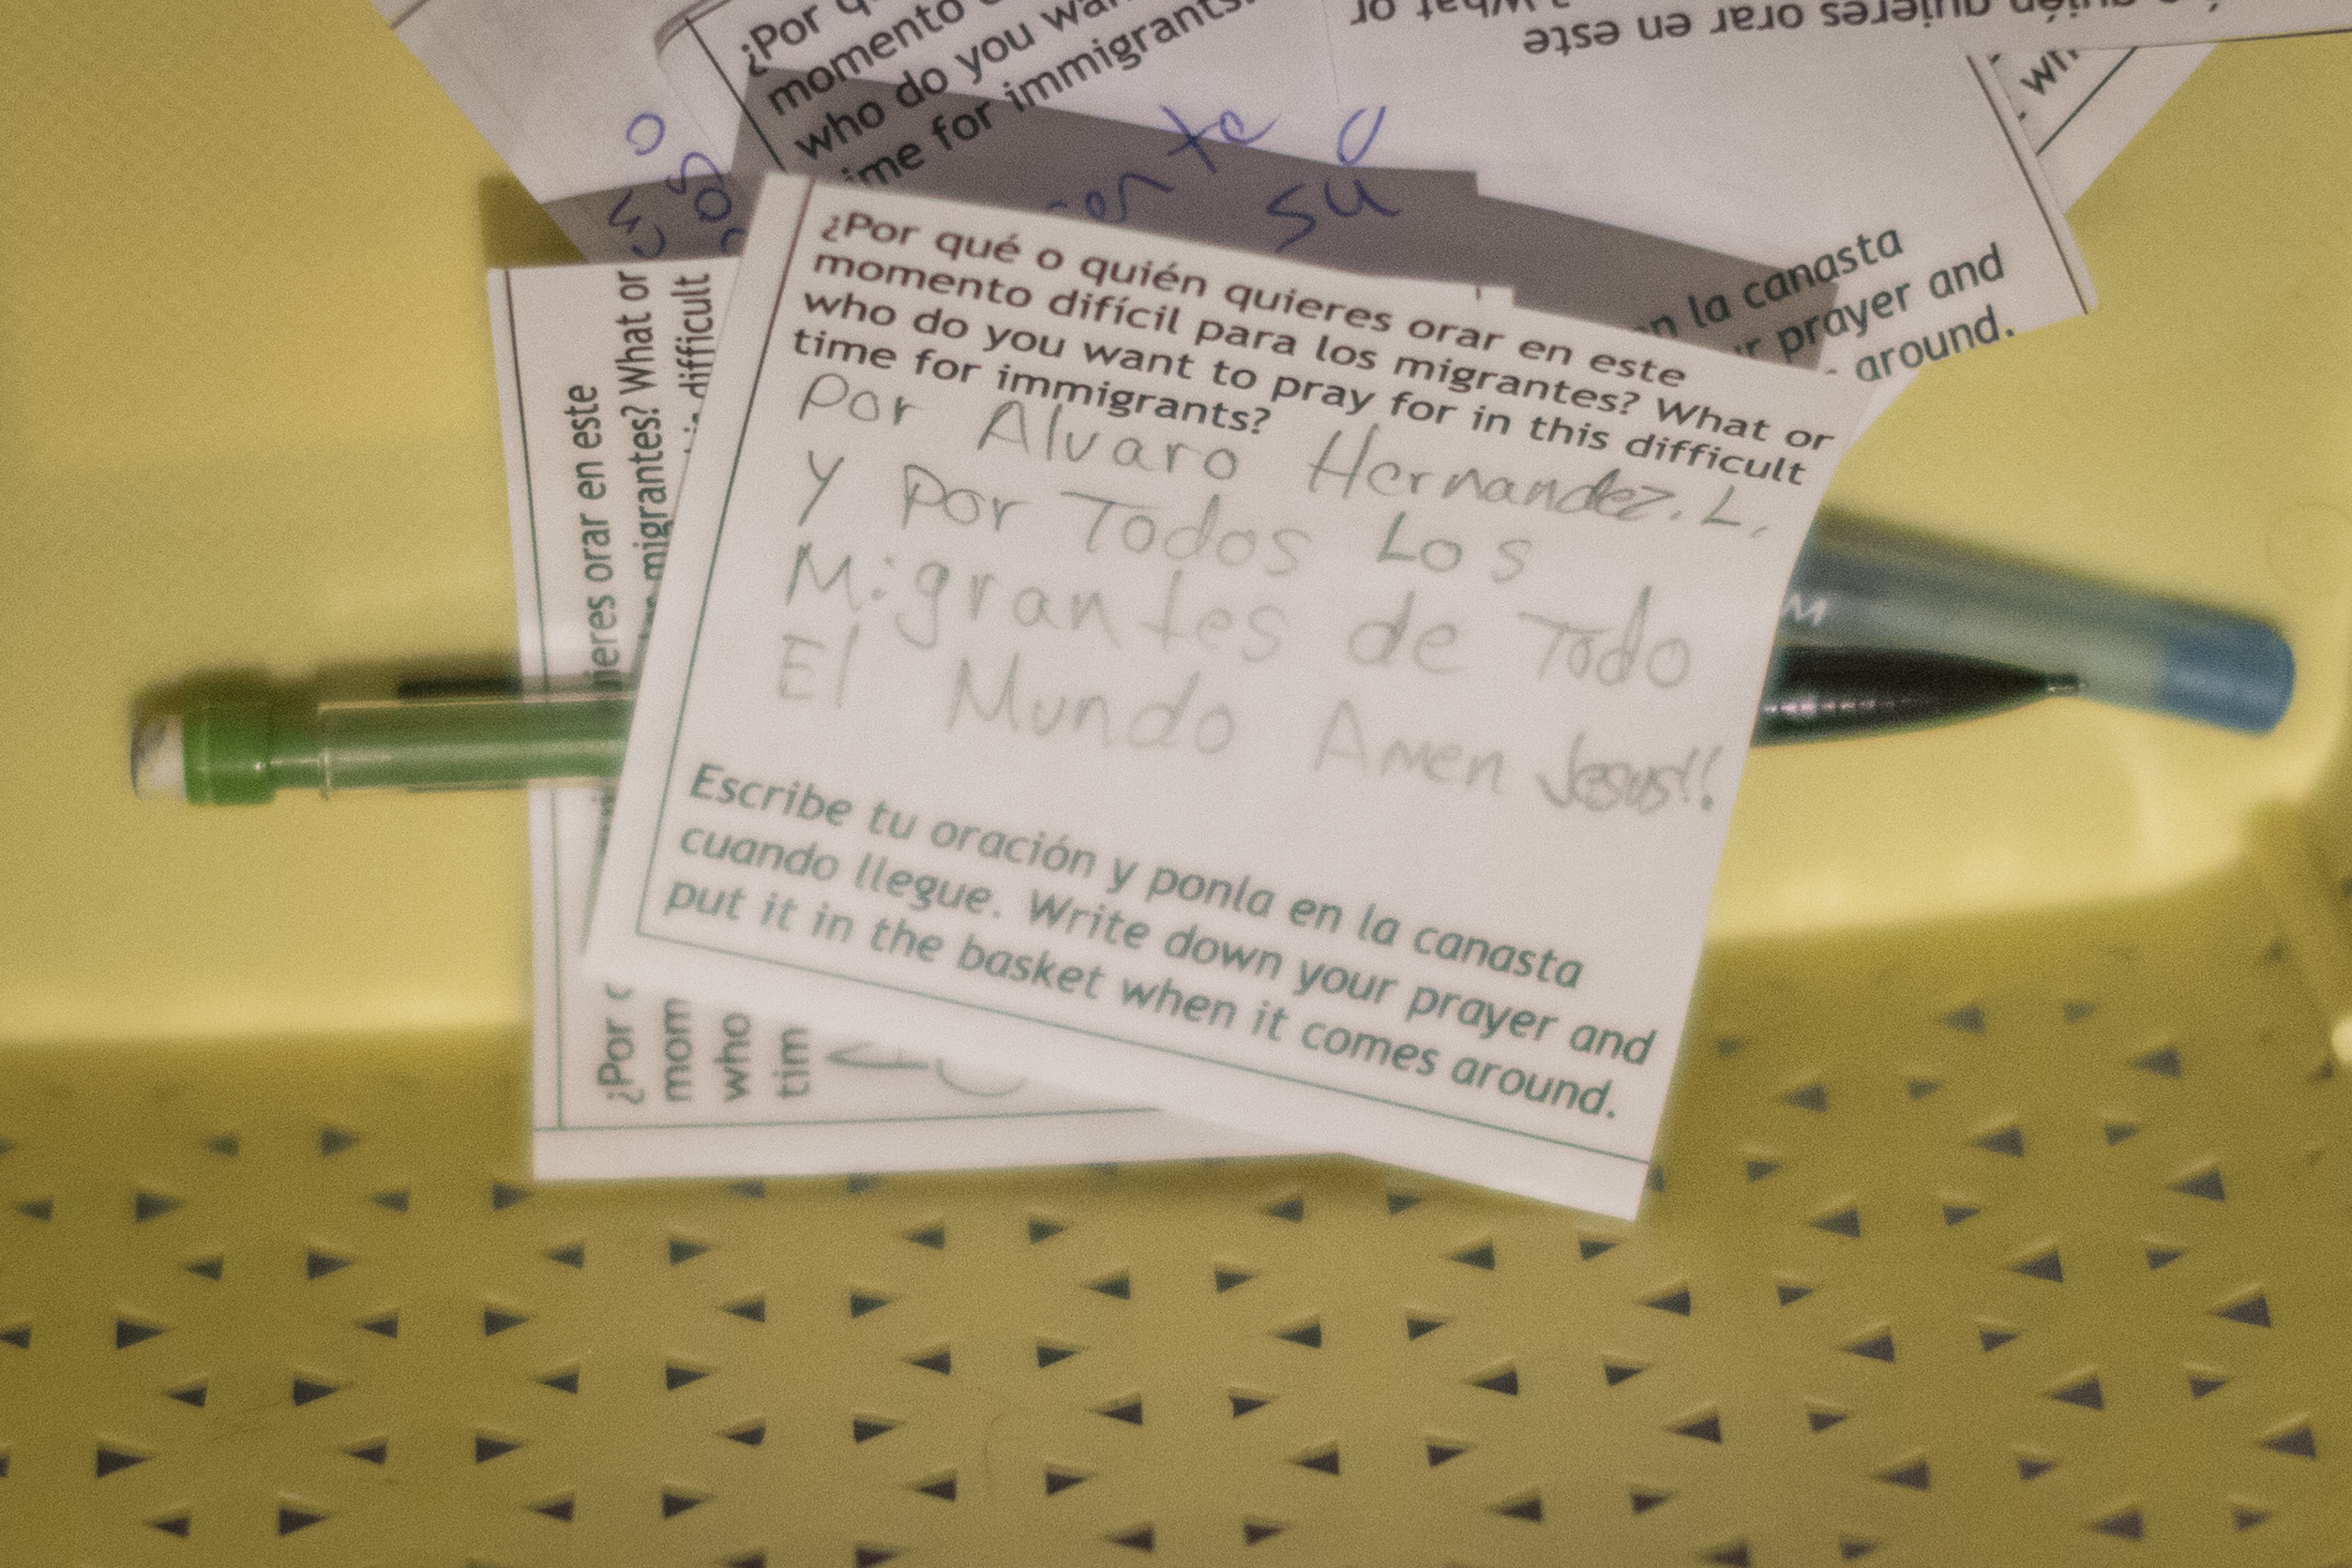 ¿Por
momento
who do you
ime for immigrants.
What or
quién quieres orar en este
su
en la canasta
prayer and
around.
ieres orar en este
migrantes? What or
difficult
¿Por
mom
who
tim
¿Por qué o quién quieres orar en este
momento difícil para los migrantes? What or
who do you want to pray for in this difficult
time for immigrants?
Por Alvaro Hernandez. L.
Y Por Todos Los
Migrantes de Todo
El Mundo Amen Jesus!!
Escribe tu oración y ponla en la canasta
cuando llegue. Write down your prayer and
put it in the basket when it comes around.